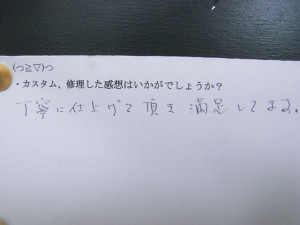 (っ≧▽)っ
・カスタム、修理した感想はいかがでしょうか？
丁寧に仕上げて頂き 満足してます。